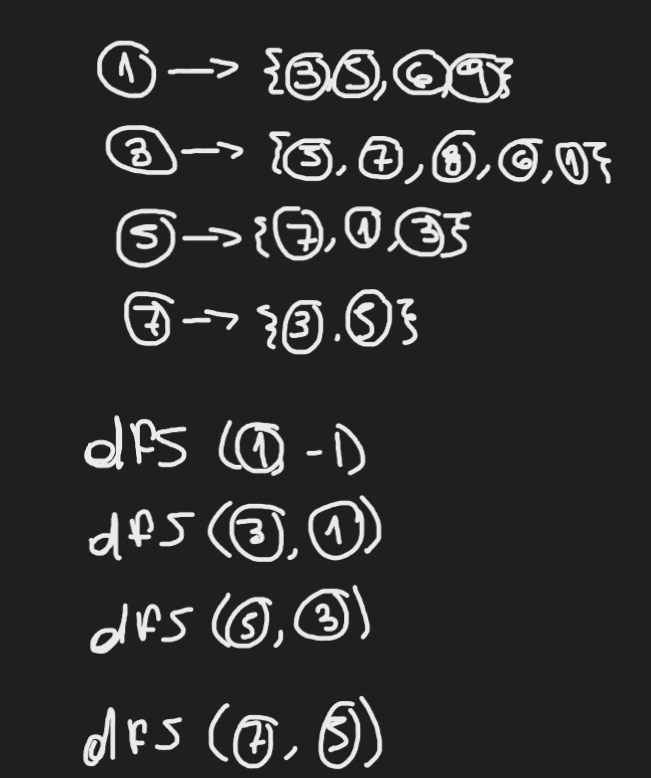 1 -> {3 5, 6 9}
3 -> {5, 7, 8, 6, 1}
5 -> {7, 1, 3}
7 -> {3. 5}
dfs (1, -1)
dfs (3, 1)
dfs (5, 3)
dfs (7, 5)